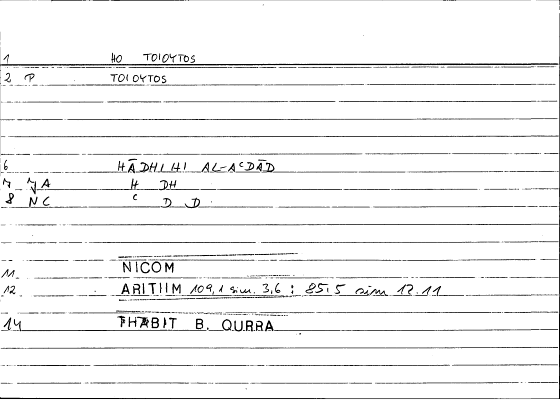 1 HO TOIOYTOS
2 P TOIOYTOS
6 HĀDHIHI AL-AᶜDĀD
7 MA H DH
8 NC ᶜ D D
11 NICOM
12 ARITHM 109,1 sim. 3,6 : 85.5 sim 12.11
14 THABIT B. QURRA